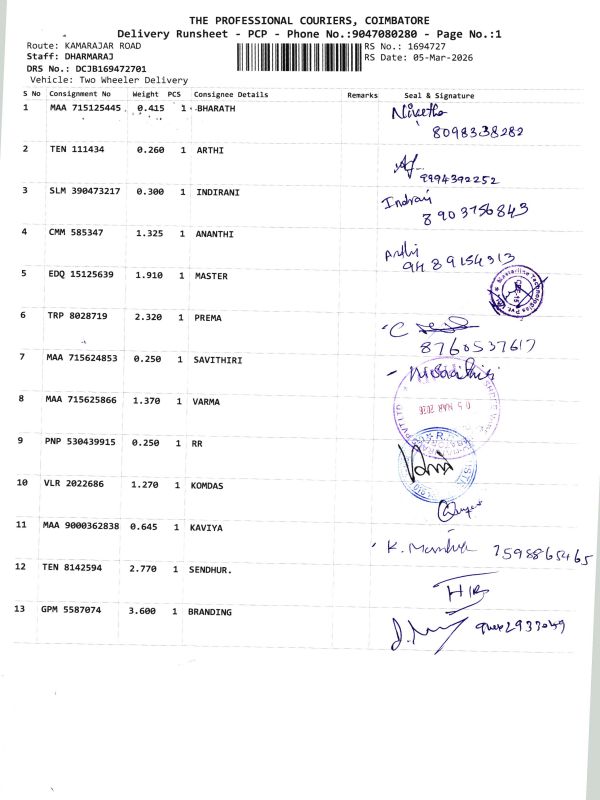 THE PROFESSIONAL COURIERS, COIMBATORE
Delivery Runsheet - PCP - Phone No.:9047080280 - Page No.:1
Route: KAMARAJAR ROAD
RS No.: 1694727
Staff: DHARMARAJ
RS Date: 05-Mar-2026
DRS No.: DCJB169472701
Vehicle: Two Wheeler Delivery
S No Consignment No Weight PCS Consignee Details Remarks Seal & Signature
1 MAA 715125445 0.415 1 BHARATH
8098338282
2 TEN 111434 0.260 1 ARTHI
9994392252
3 SLM 390473217 0.300 1 INDIRANI
Indrani
8903756843
4 CMM 585347 1.325 1 ANANTHI
9489154313
5 EDQ 15125639 1.910 1 MASTER
6 TRP 8028719 2.320 1 PREMA
8760537617
7 MAA 715624853 0.250 1 SAVITHIRI
8 MAA 715625866 1.370 1 VARMA
05 MAR 2026
9 PNP 530439915 0.250 1 RR
10 VLR 2022686 1.270 1 KOMDAS
11 MAA 9000362838 0.645 1 KAVIYA
7598865465
12 TEN 8142594 2.770 1 SENDHUR.
13 GPM 5587074 3.600 1 BRANDING